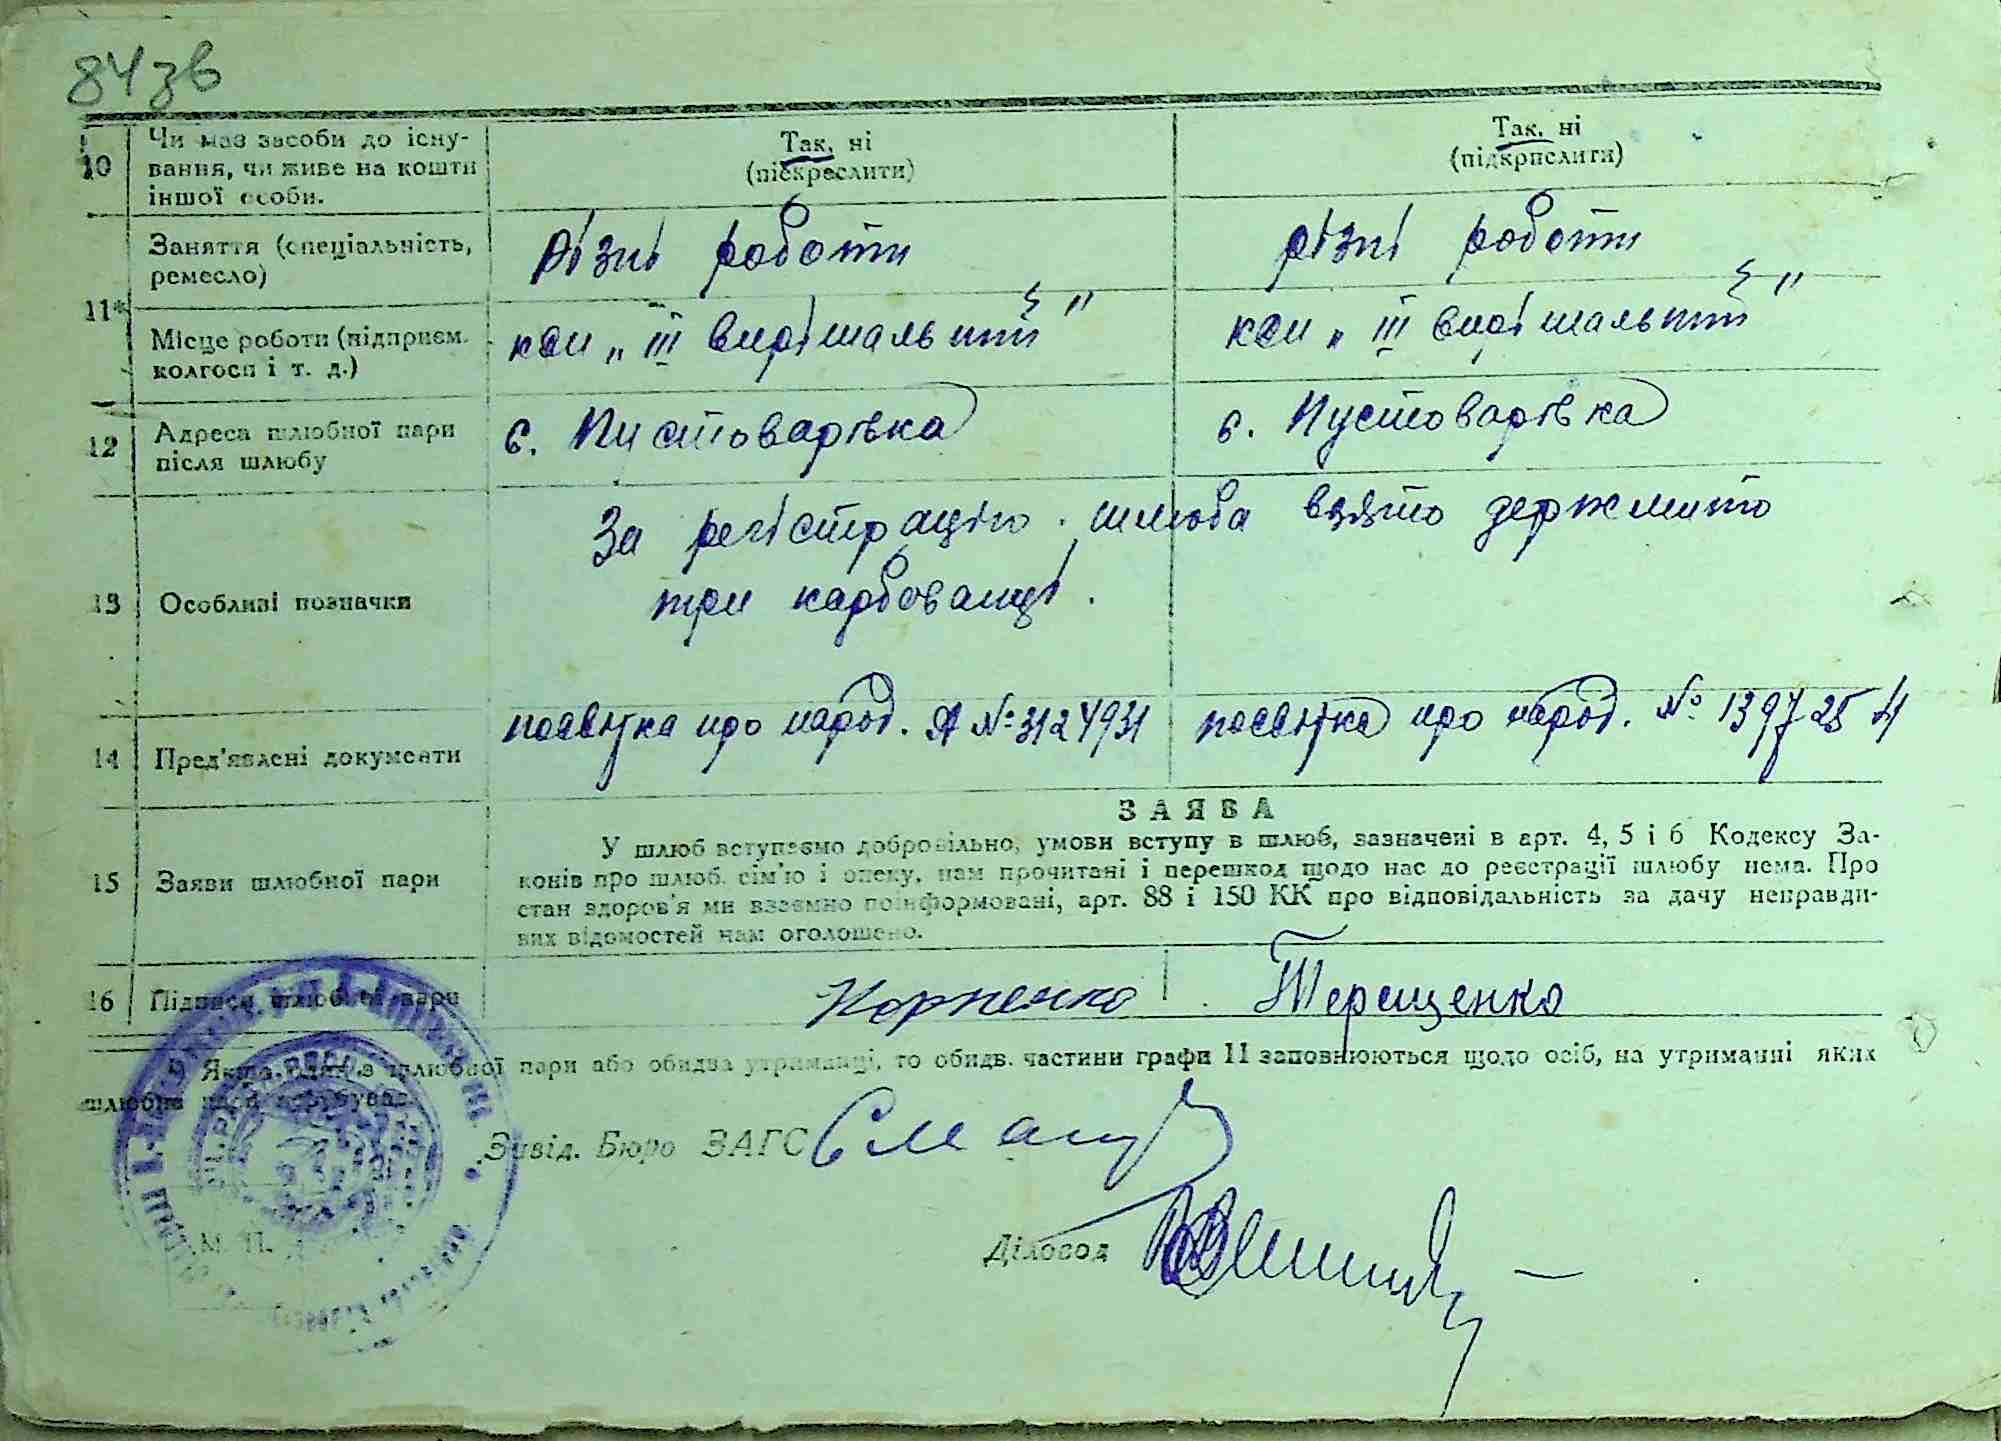 84зв
10 Чи має засоби до існу-
вання, чи живе на кошти
іншої особи.
Так, ні
(піскреслити)
Так, ні
(підкрислити)
11*
Заняття (спеціальність,
ремесло)
різні роботи
різні роботи
Місце роботи (підприєм.
колгосп і т. д.)
к-сп „III вирішальний"
к-сп „III вирішальний"
12 Адреса шлюбної пари
після шлюбу
с. Пустоварівка
с. Пустоварівка
13 Особливі позначки
За регістрацію шлюба взято держмито
три карбованці.
14 Пред'явлені документи
посвідка про народ. А № 3124931
посвідка про народ. № 1397254
15 Заяви шлюбної пари
ЗАЯВА
У шлюб вступаємо добровільно, умови вступу в шлюб, зазначені в арт. 4, 5 і 6 Кодексу За-
конів про шлюб, сім'ю і опеку, нам прочитані і перешкод щодо нас до реєстрації шлюбу нема. Про
стан здоров'я ми взаємно поінформовані, арт. 88 і 150 КК про відповідальність за дачу неправди-
вих відомостей нам оголошено.
16 Підписи шлюбної пари
Корпенко
Терещенко
*) Якщо один з шлюбної пари або обидва утриманці, то обидв. частини графи 11 заповнюються щодо осіб, на утриманні яких
шлюбна пара перебуває.
Завід. Бюро ЗАГС
Діловод
М. П.